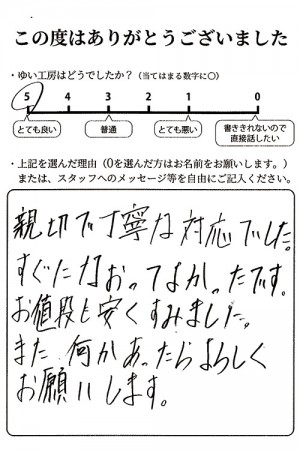 この度はありがとうございました
・ゆい工房はどうでしたか？（当てはまる数字に○）
5 4 3 2 1 0
とても良い 普通 とても悪い 書ききれないので直接話したい
・上記を選んだ理由（0を選んだ方はお名前をお願いします。）
または、スタッフへのメッセージ等を自由にご記入ください。
親切で丁寧な対応でした。
すぐになおってよかったです。
お値段も安くすみました。
また何かあったらよろしく
お願いします。